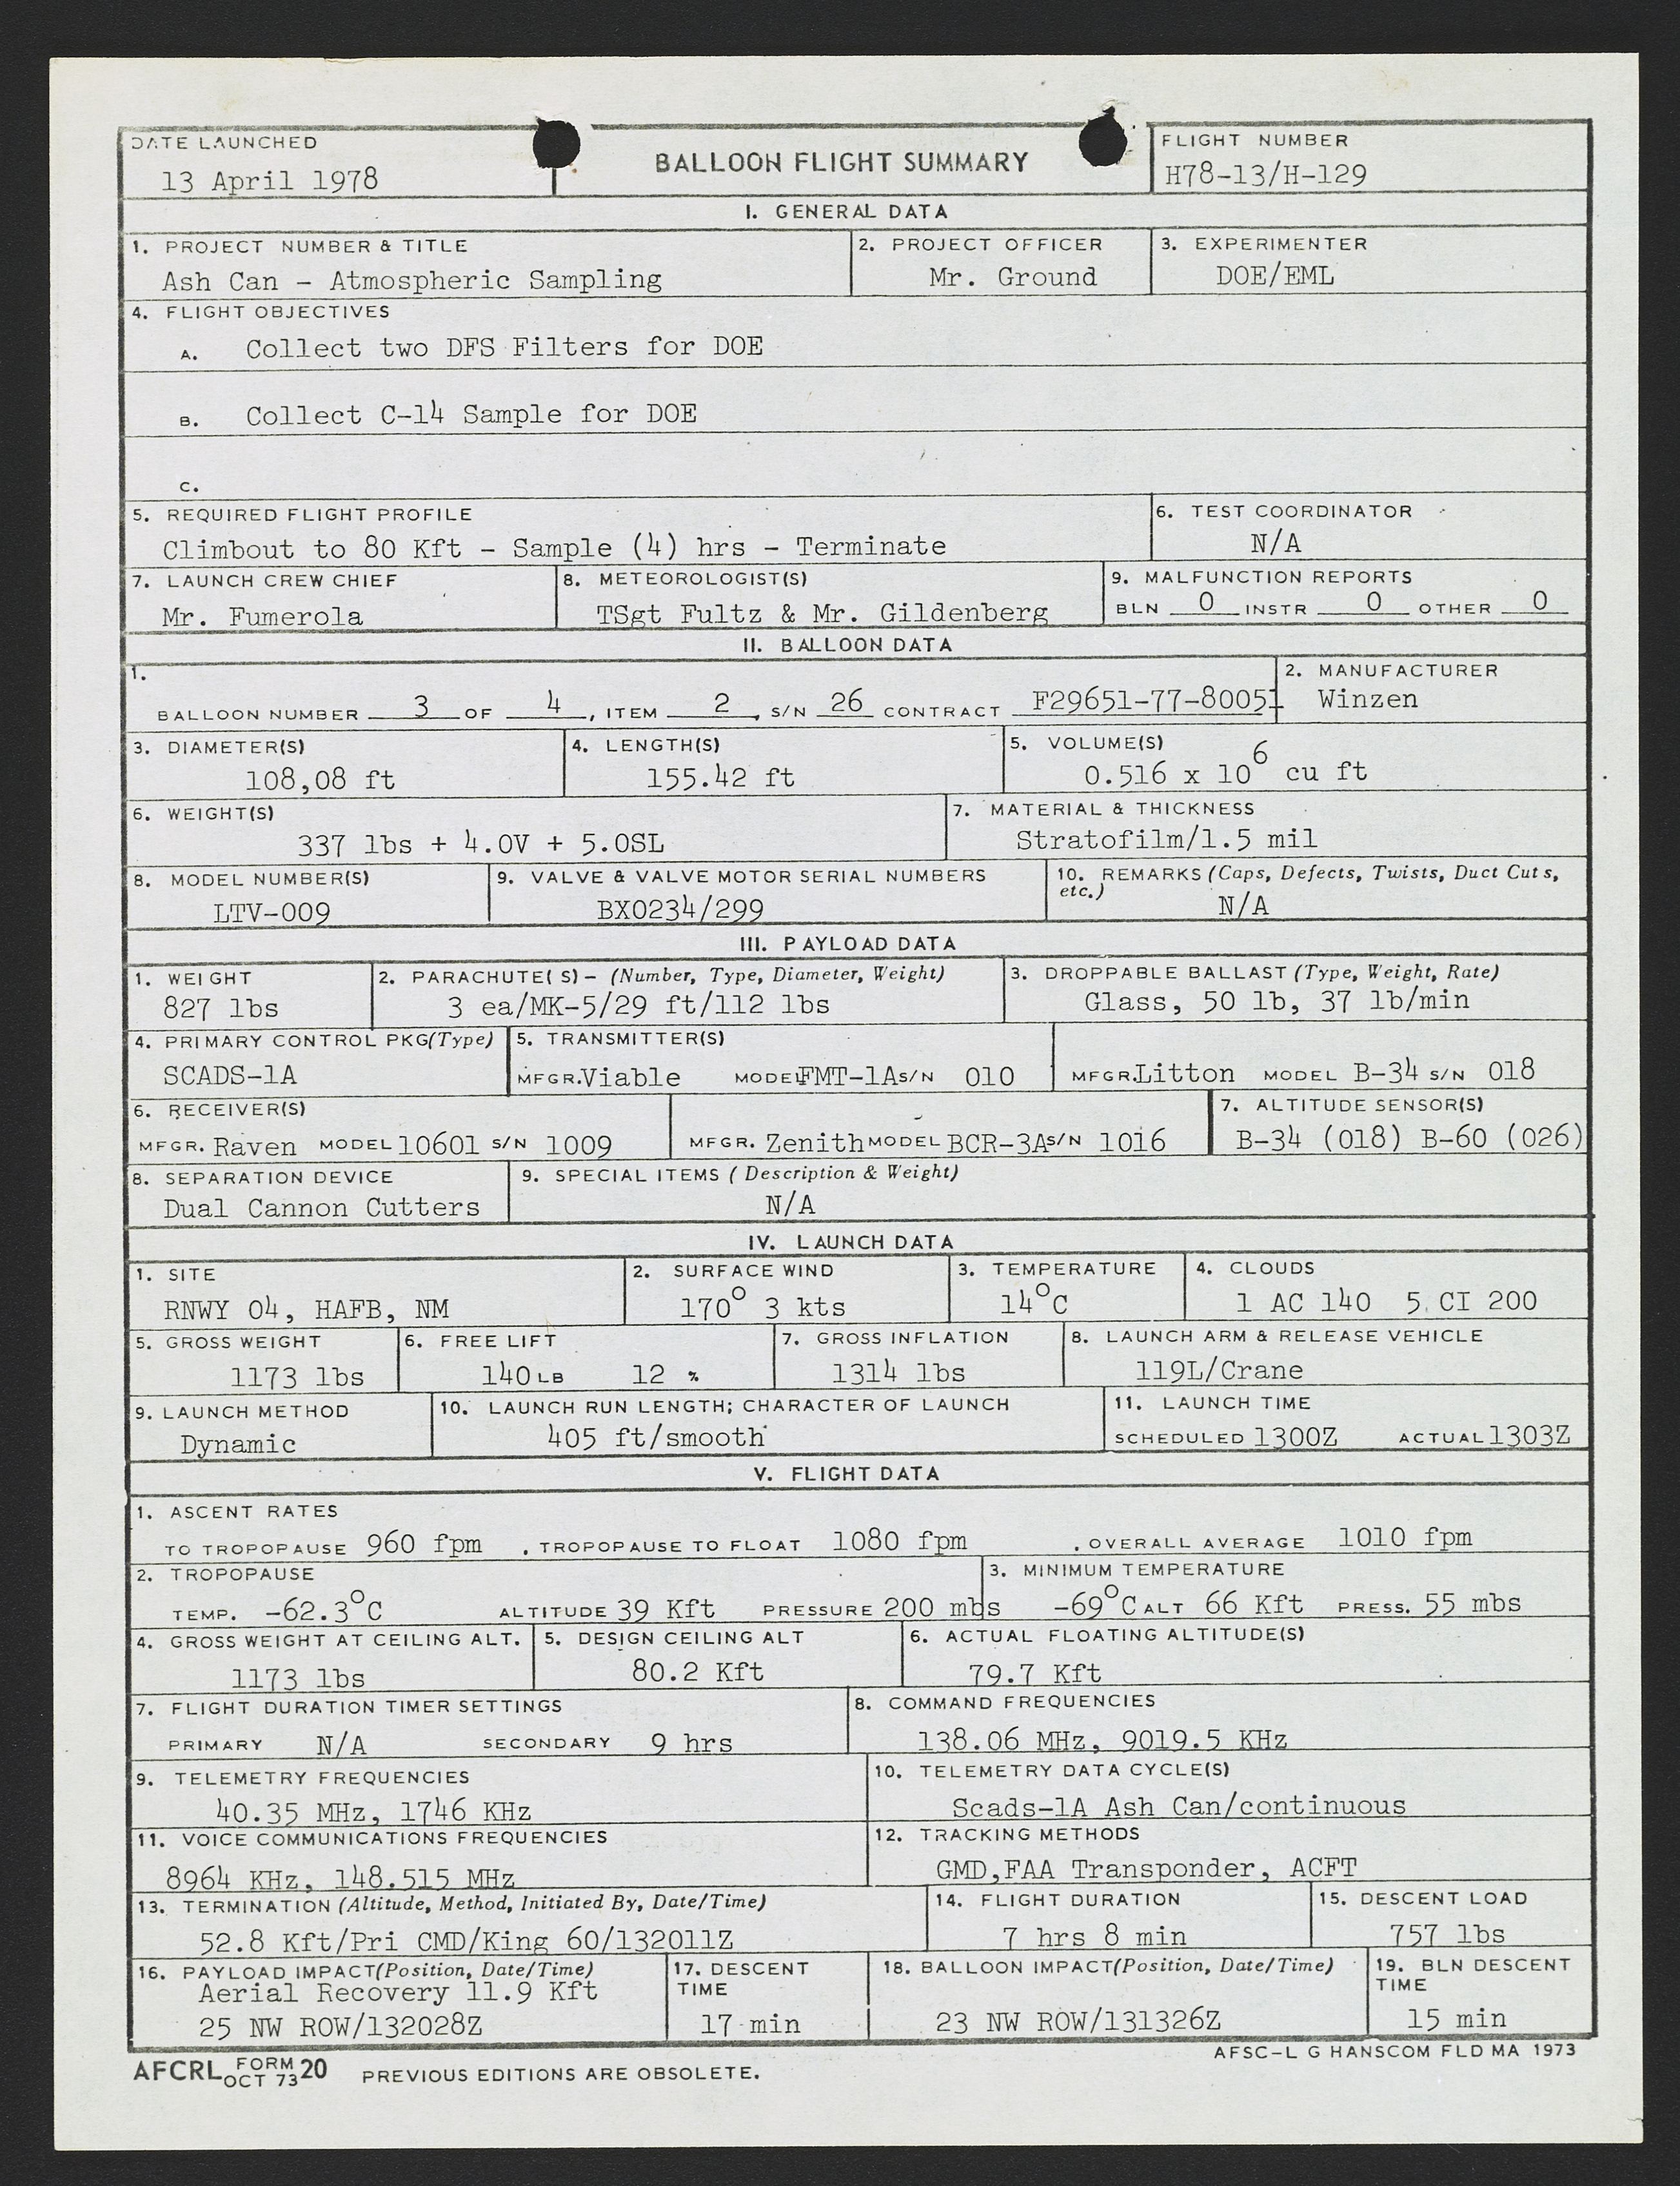 DATE LAUNCHED
13 April 1978
BALLOON FLIGHT SUMMARY
FLIGHT NUMBER
H78-13/H-129
I. GENERAL DATA
1. PROJECT NUMBER & TITLE
Ash Can - Atmospheric Sampling
2. PROJECT OFFICER
Mr. Ground
3. EXPERIMENTER
DOE/EML
4. FLIGHT OBJECTIVES
A. Collect two DFS Filters for DOE
B. Collect C-14 Sample for DOE
C.
5. REQUIRED FLIGHT PROFILE
Climbout to 80 Kft - Sample (4) hrs - Terminate
6. TEST COORDINATOR
N/A
7. LAUNCH CREW CHIEF
Mr. Fumerola
8. METEOROLOGIST(S)
TSgt Fultz & Mr. Gildenberg
9. MALFUNCTION REPORTS
BLN 0 INSTR 0 OTHER 0
II. BALLOON DATA
1.
BALLOON NUMBER 3 OF 4, ITEM 2, S/N 26 CONTRACT F29651-77-80051
2. MANUFACTURER
Winzen
3. DIAMETER(S)
108,08 ft
4. LENGTH(S)
155.42 ft
5. VOLUME(S)
0.516 x 10⁶ cu ft
6. WEIGHT(S)
337 lbs + 4.0V + 5.0SL
7. MATERIAL & THICKNESS
Stratofilm/1.5 mil
8. MODEL NUMBER(S)
LTV-009
9. VALVE & VALVE MOTOR SERIAL NUMBERS
BX0234/299
10. REMARKS (Caps, Defects, Twists, Duct Cuts,
etc.)
N/A
III. PAYLOAD DATA
1. WEIGHT
827 lbs
2. PARACHUTE(S) - (Number, Type, Diameter, Weight)
3 ea/MK-5/29 ft/112 lbs
3. DROPPABLE BALLAST (Type, Weight, Rate)
Glass, 50 lb, 37 lb/min
4. PRIMARY CONTROL PKG(Type)
SCADS-1A
5. TRANSMITTER(S)
MFGR. Viable MODEL FMT-1A S/N 010
MFGR. Litton MODEL B-34 S/N 018
6. RECEIVER(S)
MFGR. Raven MODEL 10601 S/N 1009
MFGR. Zenith MODEL BCR-3A S/N 1016
7. ALTITUDE SENSOR(S)
B-34 (018) B-60 (026)
8. SEPARATION DEVICE
Dual Cannon Cutters
9. SPECIAL ITEMS (Description & Weight)
N/A
IV. LAUNCH DATA
1. SITE
RNWY 04, HAFB, NM
2. SURFACE WIND
170° 3 kts
3. TEMPERATURE
14°C
4. CLOUDS
1 AC 140 5 CI 200
5. GROSS WEIGHT
1173 lbs
6. FREE LIFT
140 LB 12 %
7. GROSS INFLATION
1314 lbs
8. LAUNCH ARM & RELEASE VEHICLE
119L/Crane
9. LAUNCH METHOD
Dynamic
10. LAUNCH RUN LENGTH; CHARACTER OF LAUNCH
405 ft/smooth
11. LAUNCH TIME
SCHEDULED 1300Z ACTUAL 1303Z
V. FLIGHT DATA
1. ASCENT RATES
TO TROPOPAUSE 960 fpm , TROPOPAUSE TO FLOAT 1080 fpm , OVERALL AVERAGE 1010 fpm
2. TROPOPAUSE
TEMP. -62.3°C ALTITUDE 39 Kft PRESSURE 200 mbs
3. MINIMUM TEMPERATURE
-69°C ALT 66 Kft PRESS. 55 mbs
4. GROSS WEIGHT AT CEILING ALT.
1173 lbs
5. DESIGN CEILING ALT
80.2 Kft
6. ACTUAL FLOATING ALTITUDE(S)
79.7 Kft
7. FLIGHT DURATION TIMER SETTINGS
PRIMARY N/A SECONDARY 9 hrs
8. COMMAND FREQUENCIES
138.06 MHz, 9019.5 KHz
9. TELEMETRY FREQUENCIES
40.35 MHz, 1746 KHz
10. TELEMETRY DATA CYCLE(S)
Scads-1A Ash Can/continuous
11. VOICE COMMUNICATIONS FREQUENCIES
8964 KHz, 148.515 MHz
12. TRACKING METHODS
GMD,FAA Transponder, ACFT
13. TERMINATION (Altitude, Method, Initiated By, Date/Time)
52.8 Kft/Pri CMD/King 60/132011Z
14. FLIGHT DURATION
7 hrs 8 min
15. DESCENT LOAD
757 lbs
16. PAYLOAD IMPACT(Position, Date/Time)
Aerial Recovery 11.9 Kft
25 NW ROW/132028Z
17. DESCENT
TIME
17 min
18. BALLOON IMPACT(Position, Date/Time)
23 NW ROW/131326Z
19. BLN DESCENT
TIME
15 min
AFSC-L G HANSCOM FLD MA 1973
AFCRL FORM OCT 73 20 PREVIOUS EDITIONS ARE OBSOLETE.